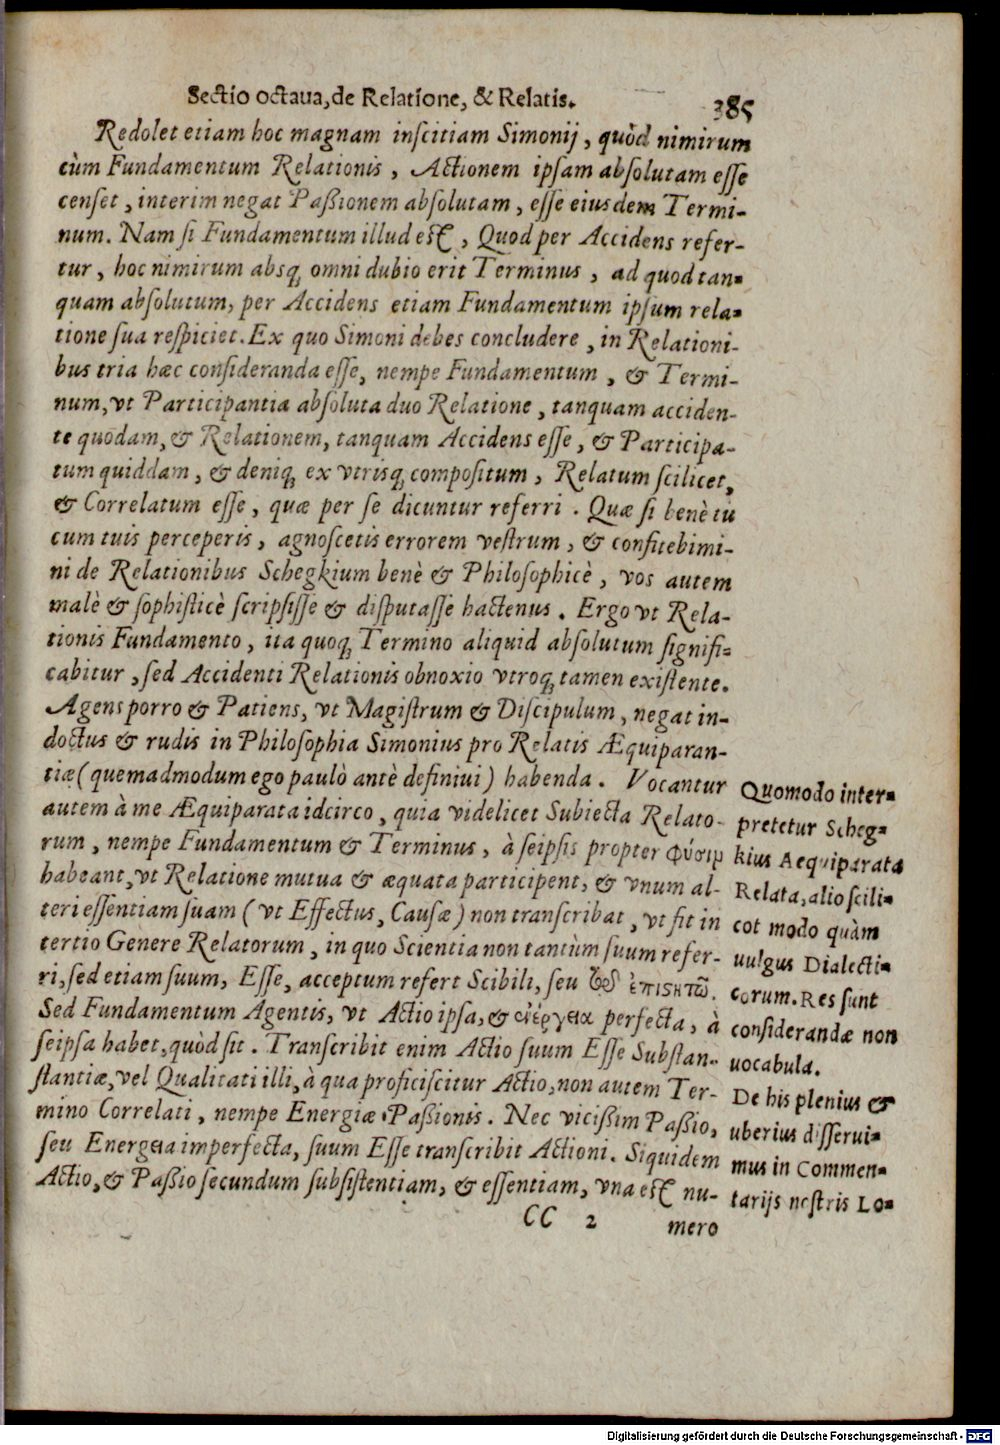 Sectio octaua, de Relatione, & Relatis. 385
Redolet etiam hoc magnam inscitiam Simonij, quòd nimirum
cùm Fundamentum Relationis, Actionem ipsam absolutam esse
censet, interim negat Paßionem absolutam, esse eiusdem Termi-
num. Nam si Fundamentum illud est, Quod per Accidens refer-
tur, hoc nimirum absq; omni dubio erit Terminus, ad quod tan-
quam absolutum, per Accidens etiam Fundamentum ipsum rela-
tione sua respiciet. Ex quo Simoni debes concludere, in Relationi-
bus tria hæc consideranda esse, nempe Fundamentum, & Termi-
num, vt Participantia absoluta duo Relatione, tanquam acciden-
te quodam, & Relationem, tanquam Accidens esse, & Participa-
tum quiddam, & deniq; ex vtrisq; compositum, Relatum scilicet,
& Correlatum esse, quæ per se dicuntur referri. Quæ si benè tu
cum tuis perceperis, agnoscetis errorem vestrum, & confitebimi-
ni de Relationibus Schegkium benè & Philosophicè, vos autem
malè & sophisticè scripsisse & disputasse hactenus. Ergo vt Rela-
tionis Fundamento, ita quoq; Termino aliquid absolutum signifi-
cabitur, sed Accidenti Relationis obnoxio vtroq; tamen existente.
Agens porro & Patiens, vt Magistrum & Discipulum, negat in-
doctus & rudis in Philosophia Simonius pro Relatis Æquiparan-
tiæ (quemadmodum ego paulò antè definiui) habenda. Vocantur
autem à me Æquiparata idcirco, quia videlicet Subiecta Relato-
rum, nempe Fundamentum & Terminus, à seipsis propter φύσιμ
habeant, vt Relatione mutua & æquata participent, & vnum al-
teri essentiam suam (vt Effectus, Causæ) non transcribat, vt fit in
tertio Genere Relatorum, in quo Scientia non tantùm suum refer-
ri, sed etiam suum, Esse, acceptum refert Scibili, seu ἐπιστητῶ.
Sed Fundamentum Agentis, vt Actio ipsa, & ἐνέργεια perfecta, à
seipsa habet, quòd sit. Transcribit enim Actio suum Esse Substan-
stantiæ, vel Qualitati illi, à qua proficiscitur Actio, non autem Ter-
mino Correlati, nempe Energiæ Paßionis. Nec vicißim Paßio,
seu Energeia imperfecta, suum Esse transcribit Actioni. Siquidem
Actio, & Paßio secundum subsistentiam, & essentiam, vna est nu-
CC 2 mero
Quomodo inter-
pretetur Scheg-
kius Aequiparata
Relata, alio scili-
cot modo quàm
uulgus Dialecti-
corum. Res sunt
considerandæ non
uocabula.
De his plenius &
uberius disserui-
mus in Commen-
tarijs nostris Lo-
Digitalisierung gefördert durch die Deutsche Forschungsgemeinschaft - DFG